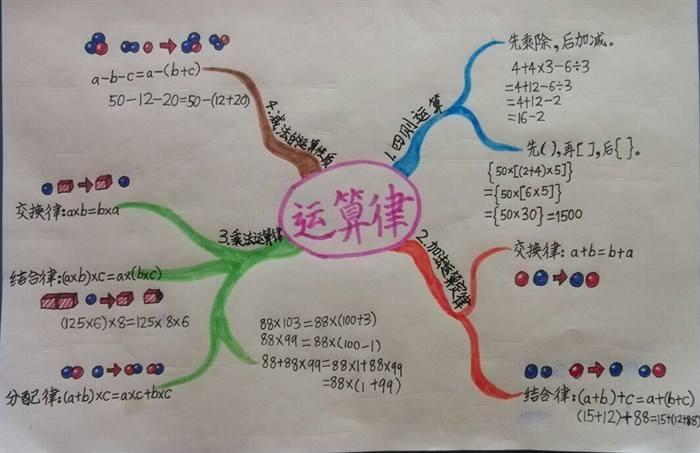 运算律
1.四则运算
先乘除，后加减。
4+4×3-6÷3
=4+12-6÷3
=4+12-2
=16-2
先( ),再[ ],后{ }。
{50×[(2+4)×5]}
={50×[6×5]}
={50×30}=1500
2.加法运算定律
交换律：a+b=b+a
结合律：(a+b)+c=a+(b+c)
(15+12)+88=15+(12+88)
3.乘法运算律
交换律:a×b=b×a
结合律:(a×b)×c=a×(b×c)
(125×6)×8=125×8×6
分配律:(a+b)×c=a×c+b×c
88×103=88×(100+3)
88×99=88×(100-1)
88+88×99=88×1+88×99
=88×(1+99)
4.减法的运算性质
a-b-c=a-(b+c)
50-12-20=50-(12+20)